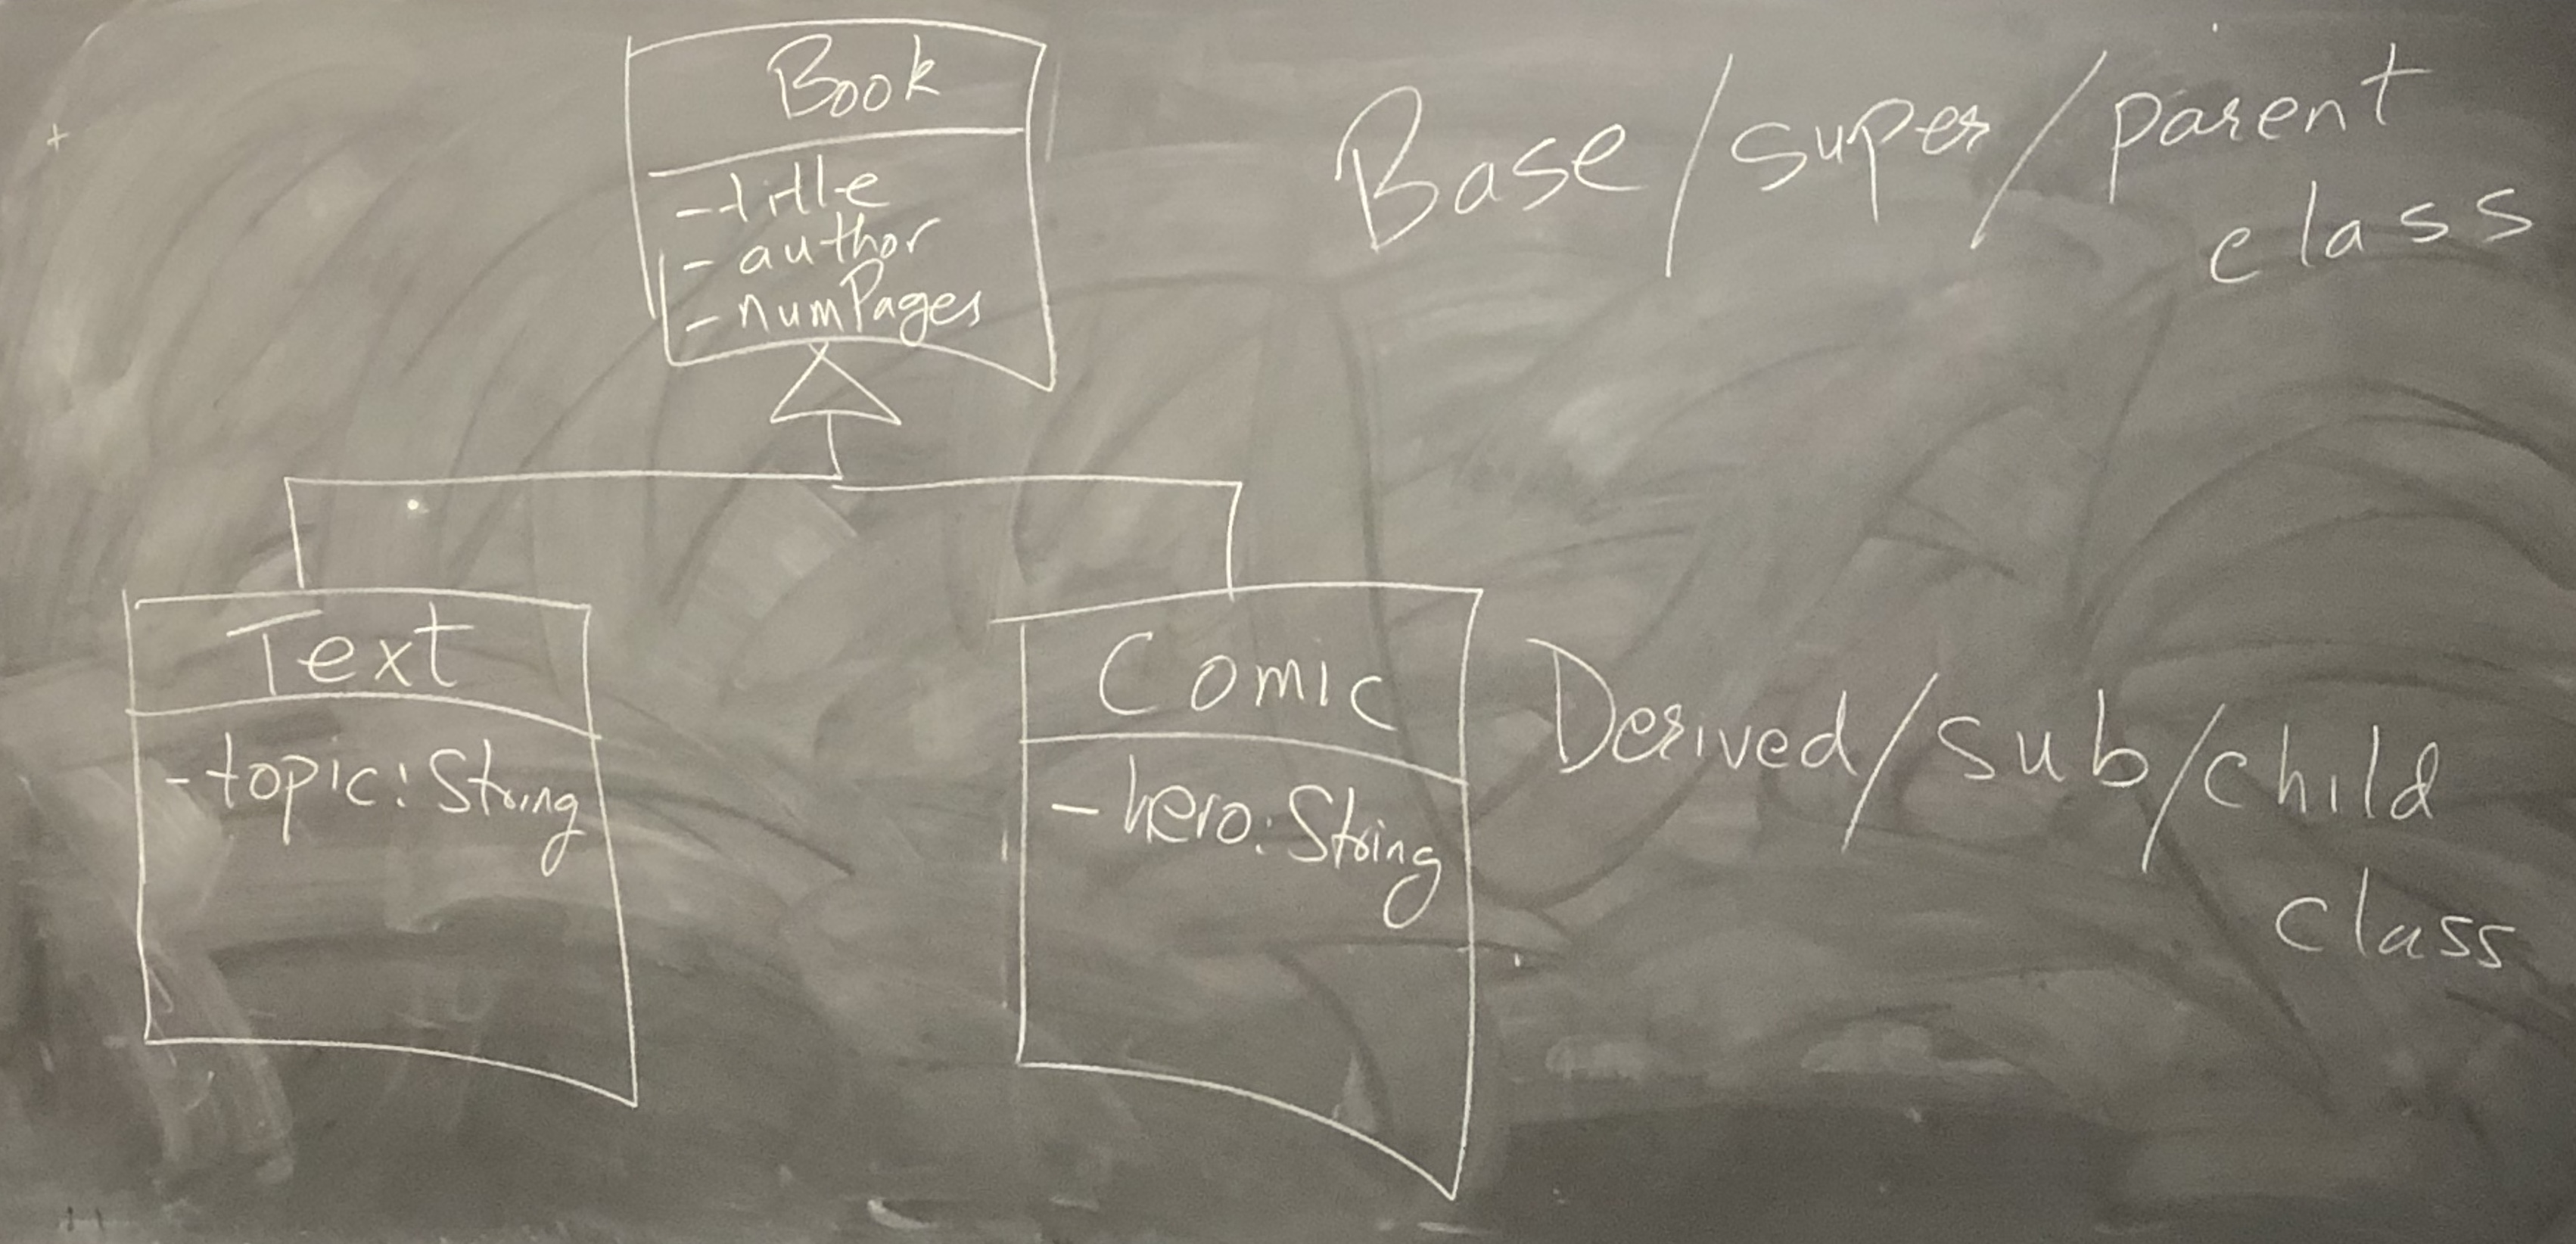 Book
- title
- author
- numPages
Base/super/parent
class
Text
- topic: String
Comic
- hero: String
Derived/sub/child
class